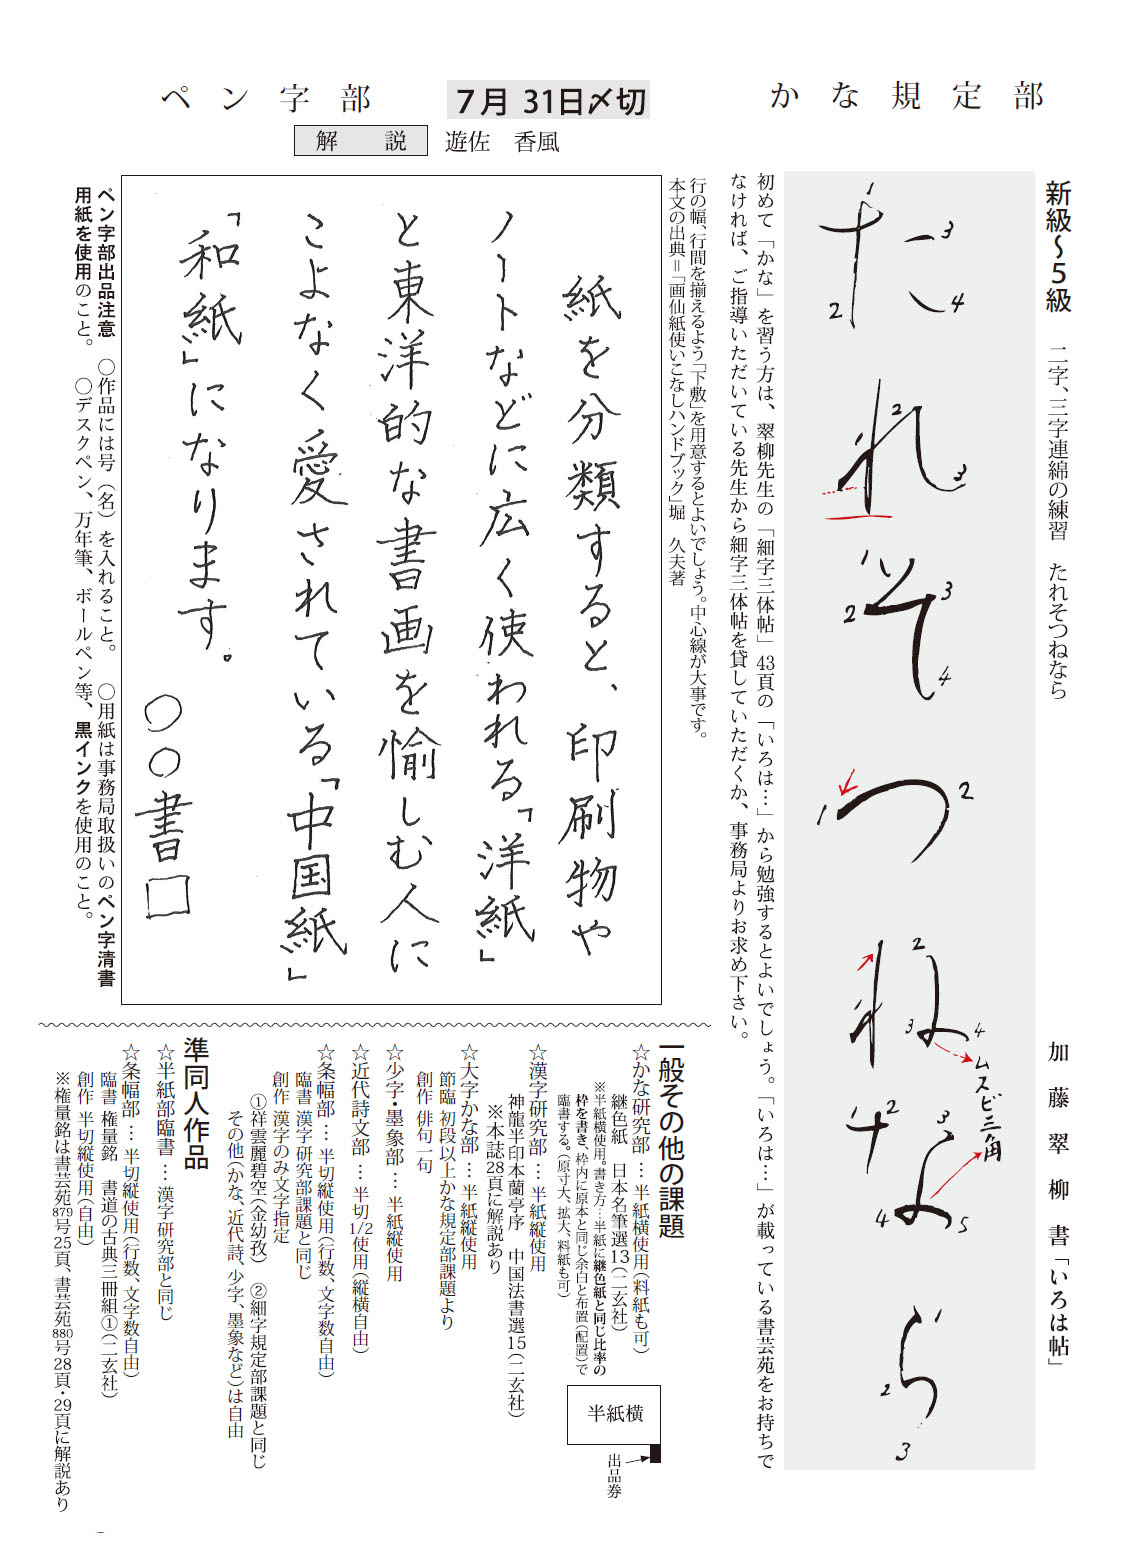 かな規定部
新級〜5級　二字、三字連綿の練習　たれそつねなら　加藤翠柳　書「いろは帖」
1 2 3 4
た
2 3
れ
1 2 3 4
そ
1 2
つ
2 3 4
ね
ムスビ三角
2 3 4 5
な
2 3
ら
初めて「かな」を習う方は、翠柳先生の「細字三体帖」43頁の「いろは…」から勉強するとよいでしょう。「いろは…」が載っている書芸苑をお持ちで
なければ、ご指導いただいている先生から細字三体帖を貸していただくか、事務局よりお求め下さい。
7月 31日〆切
ペン字部
解　説　遊佐　香風
行の幅、行間を揃えるよう「下敷」を用意するとよいでしょう。中心線が大事です。
本文の出典＝「画仙紙使いこなしハンドブック」堀　久夫著
紙を分類すると、印刷物や
ノートなどに広く使われる「洋紙」
と東洋的な書画を愉しむ人に
こよなく愛されている「中国紙」
「和紙」になります。
〇〇書□
ペン字部出品注意　〇作品には号（名）を入れること。　〇用紙は事務局取扱いのペン字清書
用紙を使用のこと。　〇デスクペン、万年筆、ボールペン等、黒インクを使用のこと。
一般その他の課題
☆かな研究部 … 半紙横使用（料紙も可）
継色紙　日本名筆選13（二玄社）
※半紙横使用。書き方…半紙に継色紙と同じ比率の
枠を書き、枠内に原本と同じ余白と布置（配置）で
臨書する。（原寸大、拡大、料紙も可）
半紙横
出品券
☆漢字研究部 … 半紙縦使用
神龍半印本蘭亭序　中国法書選15（二玄社）
※本誌28頁に解説あり
☆大字かな部 … 半紙縦使用
節臨 初段以上かな規定部課題より
創作 俳句一句
☆少字・墨象部 … 半紙縦使用
☆近代詩文部 … 半切1/2使用（縦横自由）
☆条幅部 … 半切縦使用（行数、文字数自由）
臨書 漢字研究部課題と同じ
創作 漢字のみ文字指定
①祥雲麗碧空（金幼孜）　②細字規定部課題と同じ
その他（かな、近代詩、少字、墨象など）は自由
準同人作品
☆半紙部臨書 … 漢字研究部と同じ
☆条幅部 … 半切縦使用（行数、文字数自由）
臨書 権量銘　書道の古典三冊組①（二玄社）
創作 半切縦使用（自由）
※権量銘は書芸苑879号25頁、書芸苑880号28頁・29頁に解説あり